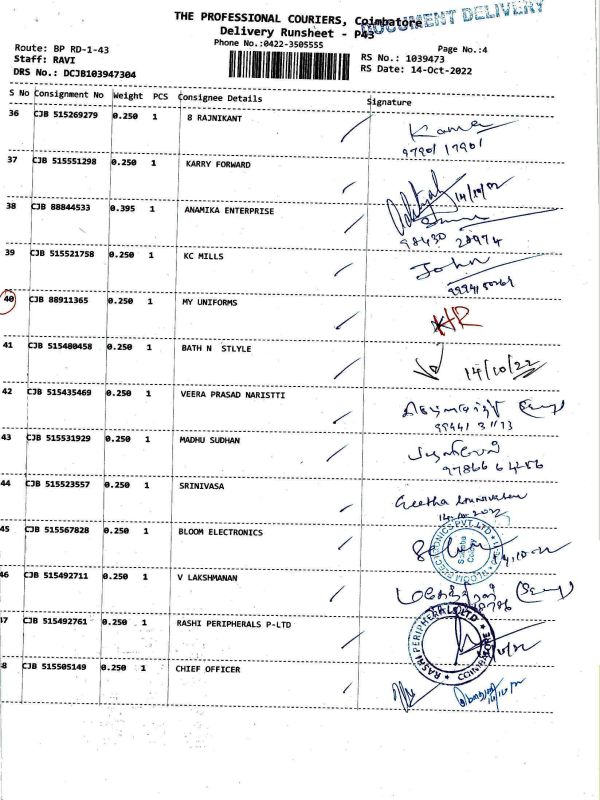 THE PROFESSIONAL COURIERS, Coimbatore
DOCUMENT DELIVERY
Delivery Runsheet - P43
Phone No.:0422-3505555
Route: BP RD-1-43
Staff: RAVI
DRS No.: DCJB103947304
Page No.:4
RS No.: 1039473
RS Date: 14-Oct-2022
S No Consignment No Weight PCS Consignee Details Signature
36 CJB 515269279 0.250 1 8 RAJNIKANT
97901 17901
37 CJB 515551298 0.250 1 KARRY FORWARD
14/10/22
38 CJB 88844533 0.395 1 ANAMIKA ENTERPRISE
98430 28974
39 CJB 515521758 0.250 1 KC MILLS John
40 CJB 88911365 0.250 1 MY UNIFORMS
41 CJB 515480458 0.250 1 BATH N STLYLE
14/10/22
42 CJB 515435469 0.250 1 VEERA PRASAD NARISTTI
43 CJB 515531929 0.250 1 MADHU SUDHAN
44 CJB 515523557 0.250 1 SRINIVASA Geetha
45 CJB 515567828 0.250 1 BLOOM ELECTRONICS
46 CJB 515492711 0.250 1 V LAKSHMANAN
47 CJB 515492761 0.250 1 RASHI PERIPHERALS P-LTD
RASHI PERIPHERALS LTD
COIMBATORE
8 CJB 515505149 0.250 1 CHIEF OFFICER